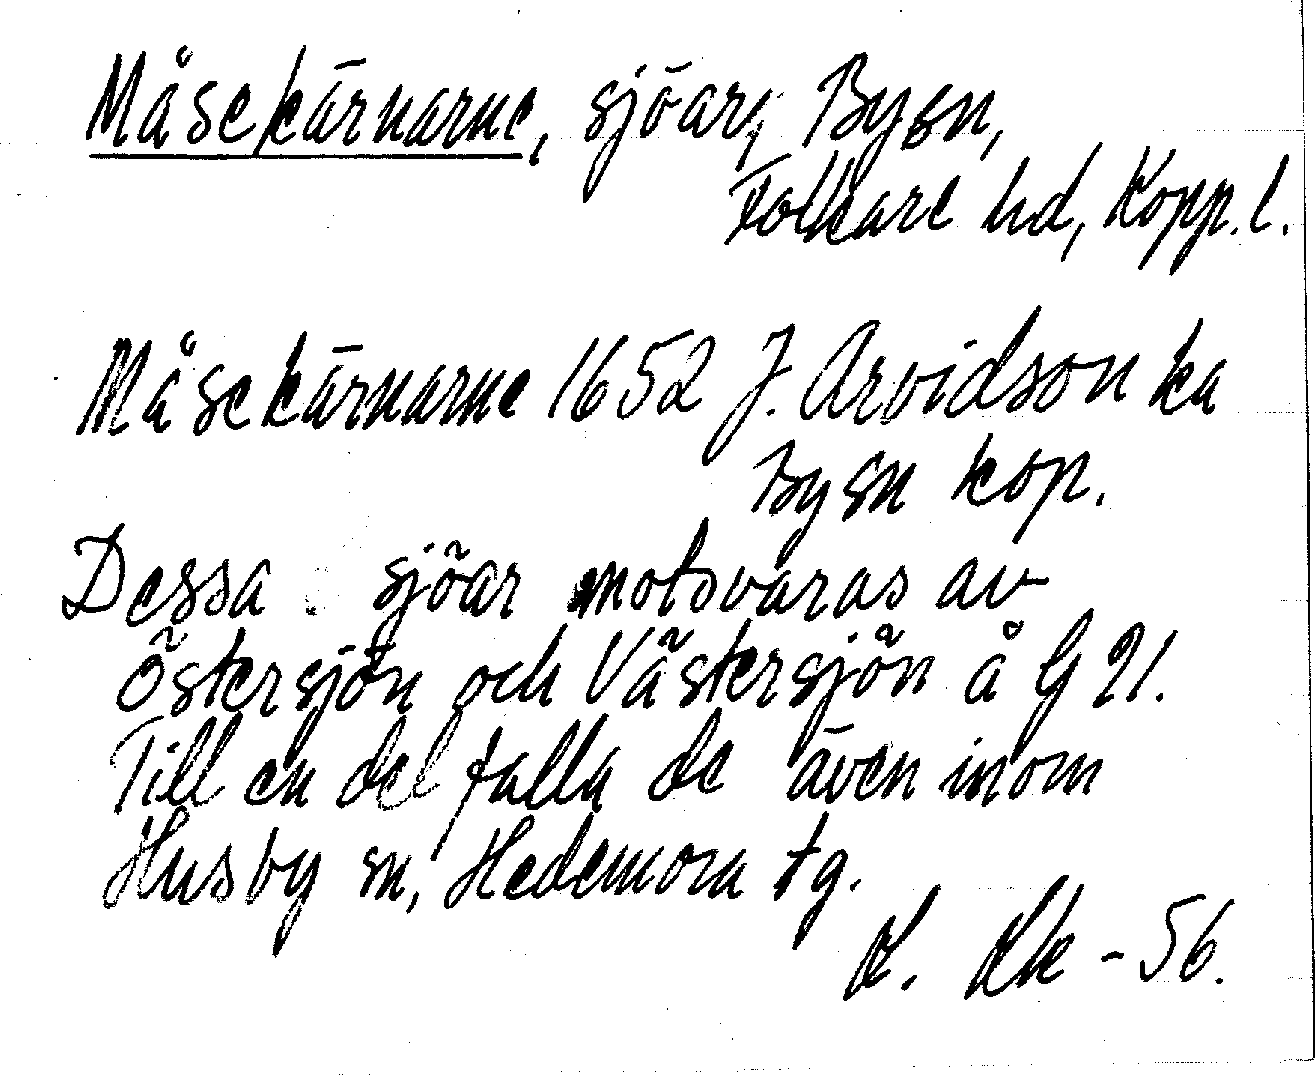 Måsekärnarne, sjöar, By sn,
Folkare hd, Kopp. l.
Måsekärnarne 1652 J. Arvidson ka
By sn kop.
Dessa sjöar motsvaras av
Östersjön och Västersjön å G 21.
Till en del falla de även inom
Husby sn, Hedemora tg.
- 56.